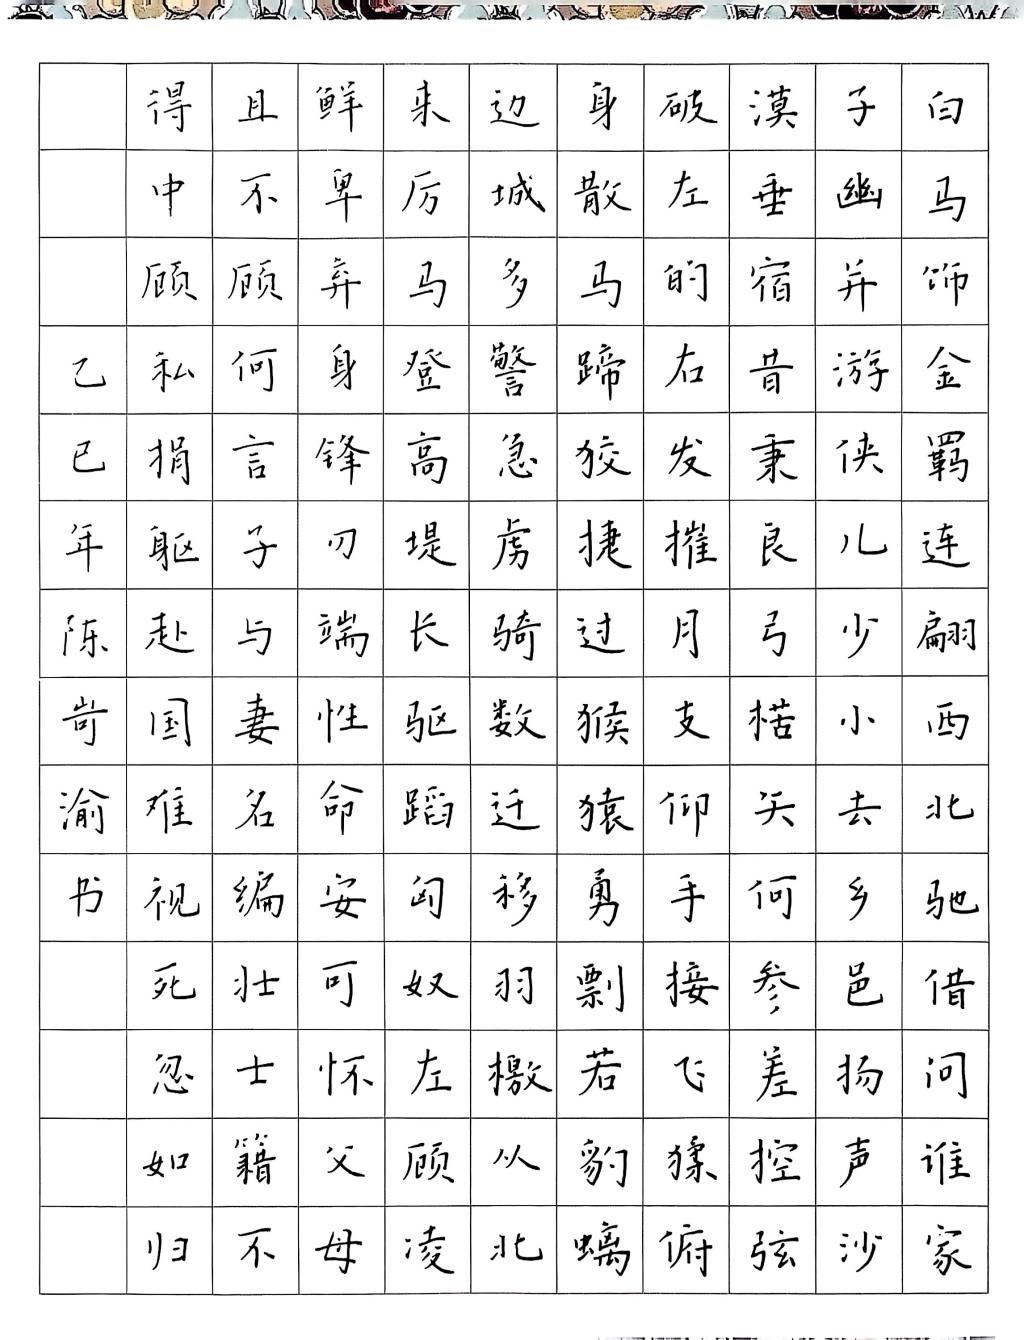 白马饰金羁连翩西北驰借问谁家
子幽并游侠儿少小去乡邑扬声沙
漠垂宿昔秉良弓楛矢何参差控弦
破左的右发摧月支仰手接飞猱俯
身散马蹄狡捷过猴猿勇剽若豹螭
边城多警急虏骑数迁移羽檄从北
来厉马登高堤长驱蹈匈奴左顾凌
鲜卑弃身锋刃端性命安可怀父母
且不顾何言子与妻名编壮士籍不
得中顾私捐躯赴国难视死忽如归
乙巳年陈岢渝书